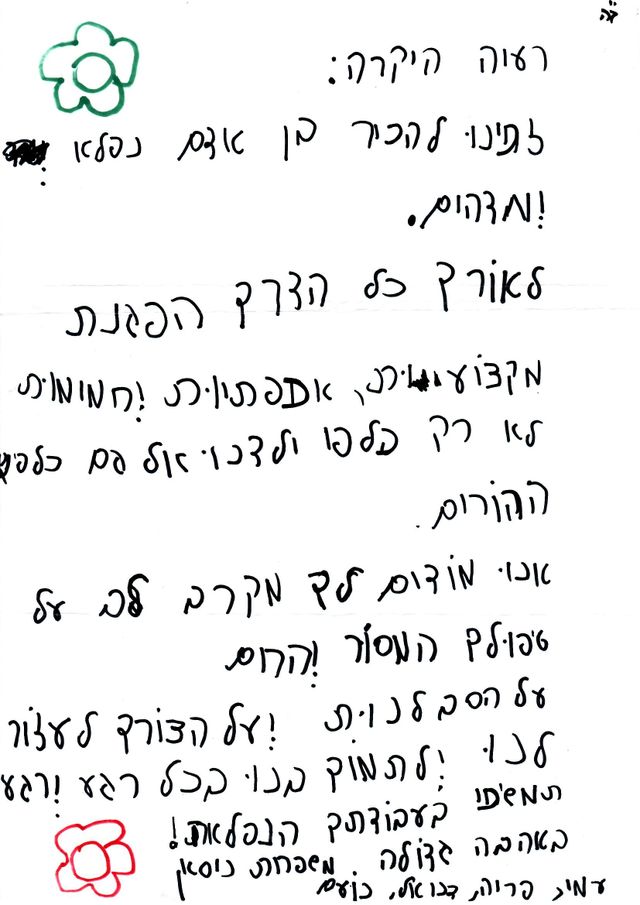 ב"ה
רעיה היקרה:
זכינו להכיר בן אדם נפלא
ומדהים.
לאורך כל הדרך הפגנת
מקצועיות, אמפתיות וחמימות
לא רק כלפי ילדנו אלא גם כלפינו
ההורים.
אנו מודים לך מקרב לב על
טיפולך המסור והחם
על הסבלנות ועל הצורך לעזור
לנו ולתמוך בנו בכל רגע ורגע
תמשיכי בעבודתך הנפלאה!
באהבה גדולה, משפחת ניסאן
עמית, פריה, דניאל, נועם